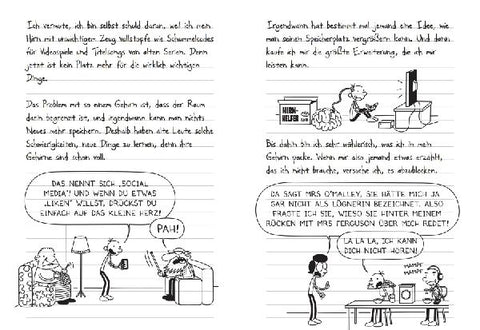 Ich vermute, ich bin selbst schuld daran, weil ich mein
Hirn mit unwichtigem Zeug vollstopfe wie Schummelcodes
für Videospiele und Titelsongs von alten Serien. Denn
jetzt ist kein Platz mehr für die wirklich wichtigen
Dinge.
Das Problem mit so einem Gehirn ist, dass der Raum
darin begrenzt ist, und irgendwann kann man nichts
Neues mehr speichern. Deshalb haben alte Leute solche
Schwierigkeiten, neue Dinge zu lernen, denn ihre
Gehirne sind schon voll.
DAS NENNT SICH „SOCIAL
MEDIA“! UND WENN DU ETWAS
„LIKEN“ WILLST, DRÜCKST DU
EINFACH AUF DAS KLEINE HERZ!
PAH!
Irgendwann hat bestimmt mal jemand eine Idee, wie
man seinen Speicherplatz vergrößern kann. Und dann
kaufe ich mir die größte Erweiterung, die ich mir
leisten kann.
HIRN-
HELFER
Bis dahin bin ich sehr wählerisch, was ich in mein
Gehirn packe. Wenn mir also jemand etwas erzählt,
das ich nicht brauche, versuche ich, es abzublocken.
DA SAGT MRS O'MALLEY, SIE HÄTTE MICH JA
GAR NICHT ALS LÜGNERIN BEZEICHNET. ALSO
FRAGTE ICH SIE, WIESO SIE HINTER MEINEM
RÜCKEN MIT MRS FERGUSON ÜBER MICH REDET!
LA LA LA, ICH KANN
DICH NICHT HÖREN!
MAMPF
MAMPF